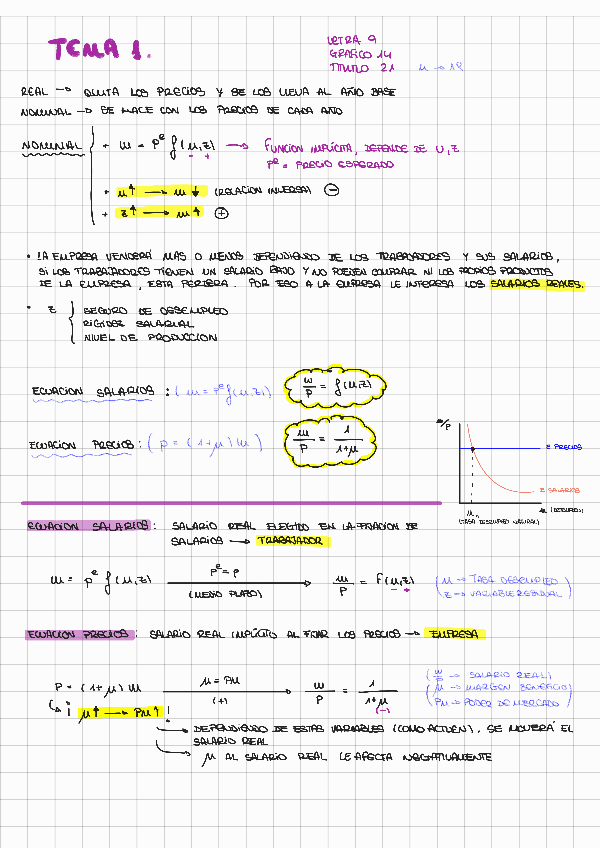 TEMA 1.
LETRA 9
GRAFICO 14
TITULO 21
u → 12
REAL → QUITA LOS PRECIOS Y SE LOS LLEVA AL AÑO BASE
NOMINAL → SE HACE CON LOS PRECIOS DE CADA AÑO
NOMINAL
→ W = Pᵉ f(u,z) → FUNCION IMPLÍCITA, DEPENDE DE U, Z
- +
Pᵉ = PRECIO ESPERADO
→ u↑ → w↓ (RELACION INVERSA) ⊖
→ z↑ → w↑ ⊕
• LA EMPRESA VENDERÁ MAS O MENOS DEPENDIENDO DE LOS TRABAJADORES Y SUS SALARIOS,
SI LOS TRABAJADORES TIENEN UN SALARIO BAJO Y NO PUEDEN COMPRAR NI LOS PROPIOS PRODUCTOS
DE LA EMPRESA, ESTA PERDERA. POR ESO A LA EMPRESA LE INTERESA LOS SALARIOS REALES.
• Z
SEGURO DE DESEMPLEO
RIGIDEZ SALARIAL
NIVEL DE PRODUCCION
ECUACION SALARIOS: (W = Pᵉ f(u,z)) W/P = f(u,z)
ECUACION PRECIOS: (P = (1+μ) W) W/P = 1/1+μ
W/P
E PRECIOS
E SALARIOS
uₙ
u (DESEMPLEO)
(TASA DESEMPLEO NATURAL)
ECUACION SALARIOS: SALARIO REAL ELEGIDO EN LA FIJACION DE
SALARIOS → TRABAJADOR
W = Pᵉ f(u,z) Pᵉ = P (MEDIO PLAZO) → W/P = F(u,z) (u → TASA DESEMPLEO
- +
z → VARIABLE RESIDUAL)
ECUACION PRECIOS: SALARIO REAL IMPLÍCITO AL FIJAR LOS PRECIOS → EMPRESA
P = (1+μ) W μ = PM (+) → W/P = 1/1+μ
(-)
(W/P → SALARIO REAL)
(μ → MARGEN BENEFICIO)
(PM → PODER DE MERCADO)
¡ μ↑ → PM↑ !
→ DEPENDIENDO DE ESTAS VARIABLES (COMO ACTUEN), SE MOVERÁ EL
SALARIO REAL
→ μ AL SALARIO REAL LE AFECTA NEGATIVAMENTE